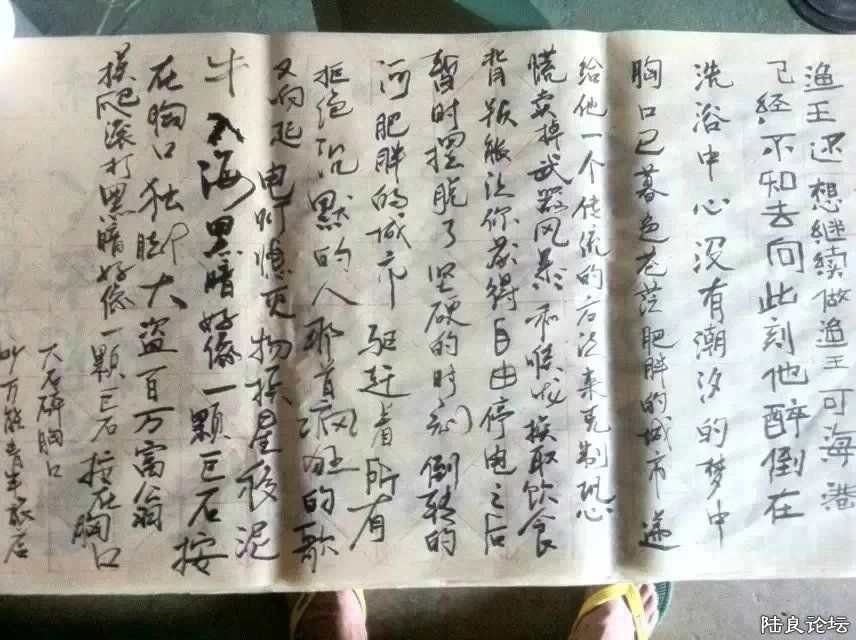 渔王还想继续做渔王可海港
已经不知去向此刻他醉倒在
洗浴中心没有潮汐的梦中
胸口已暮色苍茫肥胖的城市递
给他一个传统的方法来克制恐
慌卖掉武器风暴和喉咙换取饮食
背叛能让你获得自由停电之后
暂时摆脱了坚硬的时刻倒转的
河肥胖的城市驱赶着所有
拒绝沉默的人那首疯狂的歌
又响起电灯熄灭物换星移泥
牛入海黑暗好像一颗巨石按
在胸口独卧大盗百万富翁
摸爬滚打黑暗好像一颗巨石按在胸口
大石碎胸口
万能青年旅店
陆良论坛